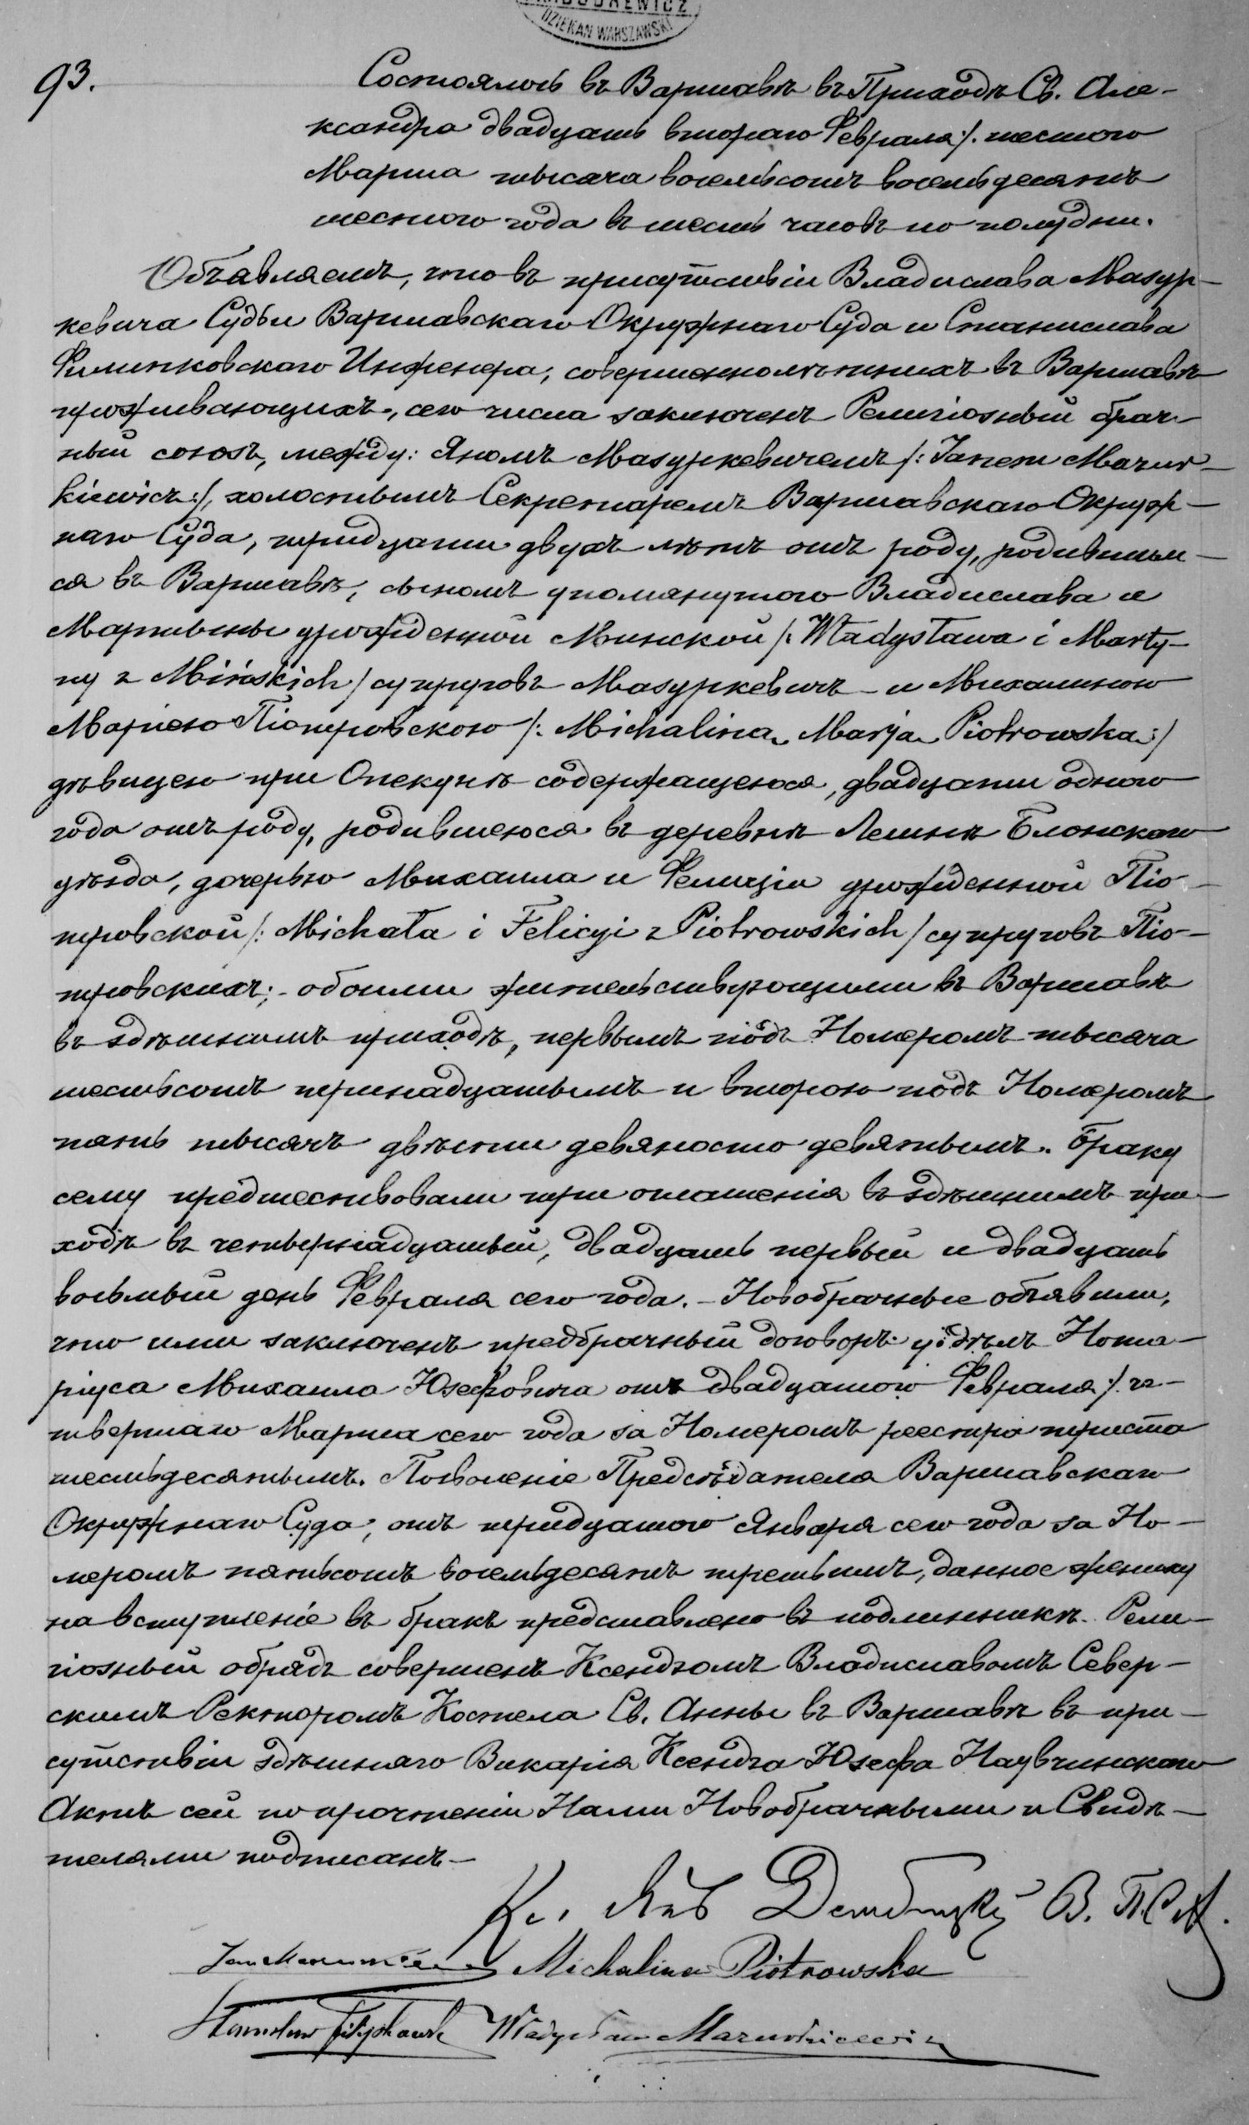 DZIEKAN WARSZAWSKI
93.
Состоялось въ Варшавѣ въ Приходѣ Св. Але-
ксандра двадцать втораго Февраля /. шестого
Марта тысяча восемьсотъ восемьдесятъ
шестого года въ шесть часовъ по полудни.
Объявляемъ, что въ присутствіи Владислава Мазур-
кевича Судьи Варшавскаго Окружнаго Суда и Станислава
Филипковскаго Инженера, совершеннолѣтнихъ въ Варшавѣ
проживающихъ, сего числа заключенъ Религіозный брач-
ный союзъ, между: Яномъ Мазуркевичемъ /: Janem Mazur-
kiewicz :/, холостымъ Секретаремъ Варшавскаго Окруж-
наго Суда, тридцати двухъ лѣтъ отъ роду, родившим-
ся въ Варшавѣ, сыномъ упомянутого Владислава и
Мартыны урожденной Минской /: Władysława i Marty-
ny z Mińskich / супруговъ Мазуркевичъ - и Михалиною
Маріею Піотровскою /: Michalina Marja Piotrowska :/
дѣвицею при Опекунѣ содержащеюся, двадцати одного
года отъ роду, родившеюся въ деревнѣ Лешнѣ Блонскаго
уѣзда, дочерью Михаила и Фелиціи урожденной Піо-
тровской /: Michała i Felicyi z Piotrowskich / супруговъ Піо-
тровскихъ; - обоими жительствующими въ Варшавѣ
въ здѣшнимъ приходѣ, первымъ подъ Номеромъ тысяча
шестьсотъ тринадцатымъ и второю подъ Номеромъ
пять тысячъ двѣсти девяносто девятымъ. Браку
сему предшествовали три оглашенія въ здѣшнимъ при-
ходѣ въ четырнадцатый, двадцать первый и двадцать
восьмый день Февраля сего года. - Новобрачные объявили,
что ими заключенъ предбрачный договоръ у дѣлъ Нота-
ріуса Михаила Юзефовича отъ двадцатого Февраля /. че-
твертаго Марта сего года за Номеромъ реестра триста
шестьдесятымъ. Позволеніе Предсѣдателя Варшавскаго
Окружнаго Суда, отъ тридцатого Января сего года за Но-
меромъ пятьсотъ восемьдесятъ третьимъ, данное жениху
на вступленіе въ бракъ представлено въ подлинникѣ. Рели-
гіозный обрядъ совершенъ Ксендзомъ Владиславомъ Север-
скимъ Ректоромъ Костела Св. Анны въ Варшавѣ въ при-
сутствіи здѣшняго Викарія Ксендза Юзефа
Актъ сей по прочтеніи Нами Новобрачными и Свидѣ-
телями подписанъ -
Кс. Янъ В. П. С. А.
Jan Mazurkiewicz Michalina Piotrowska
Stanisław Filipkowski Władysław Mazurkiewicz